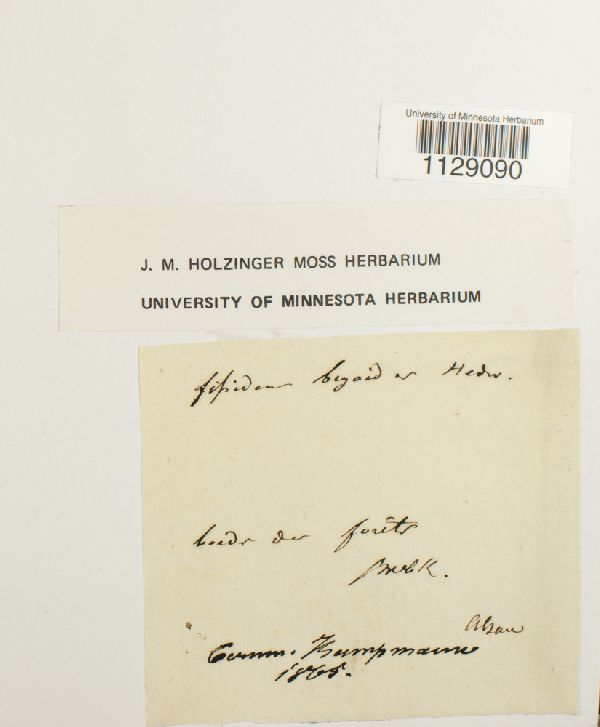 University of Minnesota Herbarium
1129090
J. M. HOLZINGER MOSS HERBARIUM
UNIVERSITY OF MINNESOTA HERBARIUM
fissidens bryoides Hedw.
bords des forêts
Comm. Kampmann
1865.